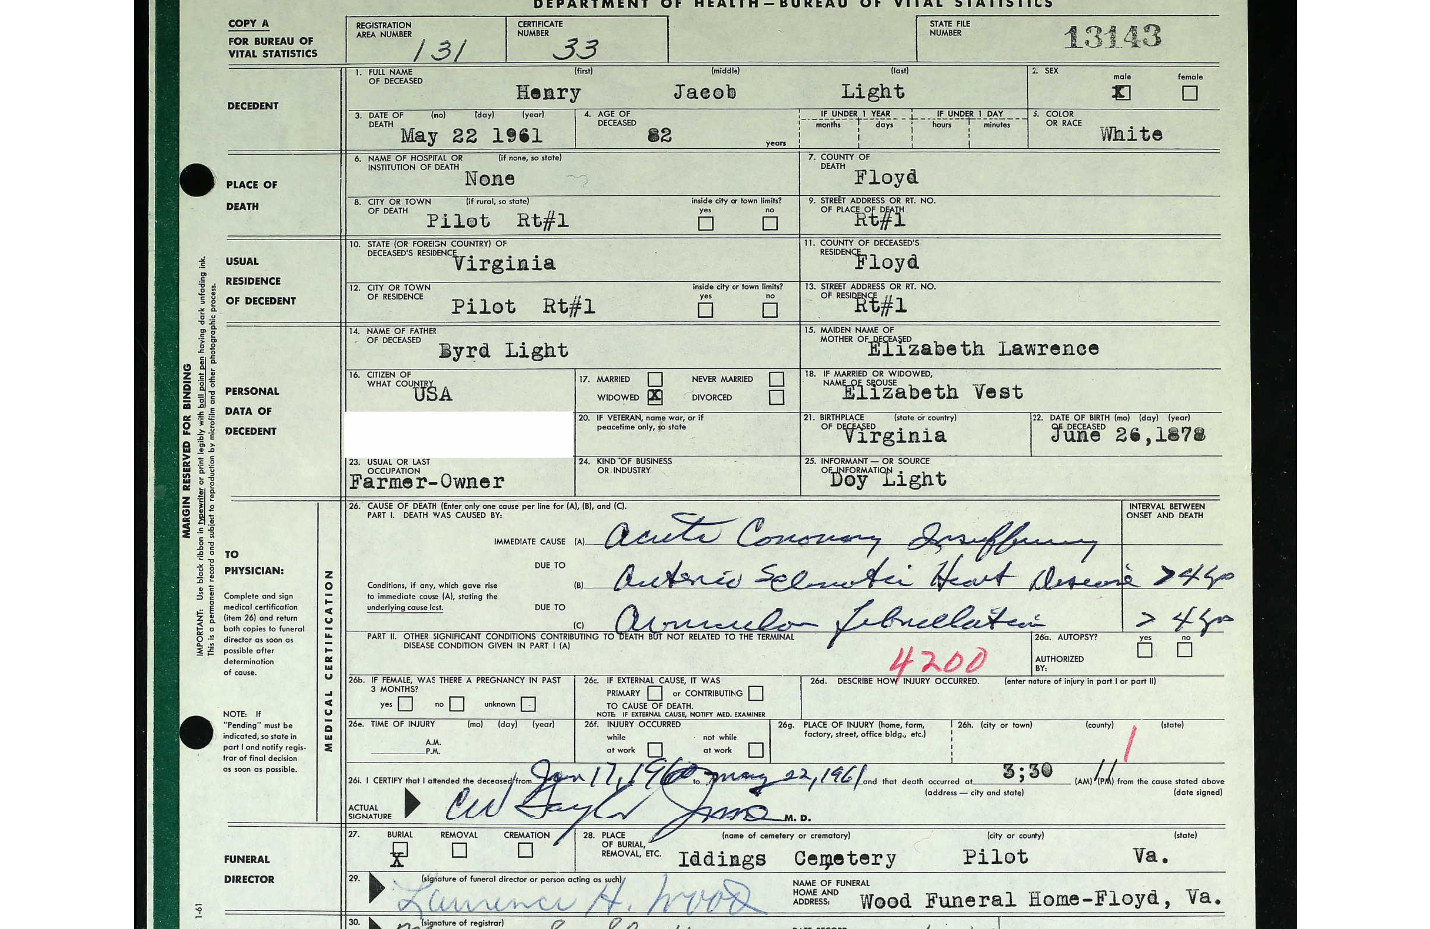 DEPARTMENT OF HEALTH—BUREAU OF VITAL STATISTICS
COPY A
FOR BUREAU OF
VITAL STATISTICS
REGISTRATION
AREA NUMBER
131
CERTIFICATE
NUMBER
33
STATE FILE
NUMBER
13143
DECEDENT
1. FULL NAME
OF DECEASED
(first) (middle) (last)
Henry Jacob Light
2. SEX
male female
X
3. DATE OF
DEATH
(mo) (day) (year)
May 22 1961
4. AGE OF
DECEASED
82
years
IF UNDER 1 YEAR
months days
IF UNDER 1 DAY
hours minutes
5. COLOR
OR RACE
White
PLACE OF
DEATH
6. NAME OF HOSPITAL OR (if none, so state)
INSTITUTION OF DEATH
None
7. COUNTY OF
DEATH
Floyd
8. CITY OR TOWN (if rural, so state)
OF DEATH
Pilot Rt#1
inside city or town limits?
yes no
9. STREET ADDRESS OR RT. NO.
OF PLACE OF DEATH
Rt#1
USUAL
RESIDENCE
OF DECEDENT
10. STATE (OR FOREIGN COUNTRY) OF
DECEASED'S RESIDENCE
Virginia
11. COUNTY OF DECEASED'S
RESIDENCE
Floyd
12. CITY OR TOWN
OF RESIDENCE
Pilot Rt#1
inside city or town limits?
yes no
13. STREET ADDRESS OR RT. NO.
OF RESIDENCE
Rt#1
PERSONAL
DATA OF
DECEDENT
14. NAME OF FATHER
OF DECEASED
Byrd Light
15. MAIDEN NAME OF
MOTHER OF DECEASED
Elizabeth Lawrence
16. CITIZEN OF
WHAT COUNTRY
USA
17. MARRIED NEVER MARRIED
WIDOWED X DIVORCED
18. IF MARRIED OR WIDOWED,
NAME OF SPOUSE
Elizabeth Vest
20. IF VETERAN, name war, or if
peacetime only, so state
21. BIRTHPLACE (state or country)
OF DECEASED
Virginia
22. DATE OF BIRTH (mo) (day) (year)
OF DECEASED
June 26,1878
23. USUAL OR LAST
OCCUPATION
Farmer-Owner
24. KIND OF BUSINESS
OR INDUSTRY
25. INFORMANT — OR SOURCE
OF INFORMATION
Doy Light
MARGIN RESERVED FOR BINDING
IMPORTANT: Use black ribbon in typewriter or print legibly with ball point pen having dark unfading ink.
This is a permanent record and subject to reproduction by microfilm and other photographic process.
TO
PHYSICIAN:
Complete and sign
medical certification
(item 26) and return
both copies to funeral
director as soon as
possible after
determination
of cause.
NOTE: If
"Pending" must be
indicated, so state in
part I and notify regis-
trar of final decision
as soon as possible.
MEDICAL CERTIFICATION
26. CAUSE OF DEATH (Enter only one cause per line for (A), (B), and (C).
PART I. DEATH WAS CAUSED BY:
INTERVAL BETWEEN
ONSET AND DEATH
IMMEDIATE CAUSE (A) Acute Coronary Insufficiency
DUE TO
(B) Arterio Sclerotic Heart Disease > 4 yrs
Conditions, if any, which gave rise
to immediate cause (A), stating the
underlying cause last.
DUE TO
(C) Auricular fibrillation > 4 yrs
PART II. OTHER SIGNIFICANT CONDITIONS CONTRIBUTING TO DEATH BUT NOT RELATED TO THE TERMINAL
DISEASE CONDITION GIVEN IN PART I (A)
4200
26a. AUTOPSY? yes no
AUTHORIZED
BY:
26b. IF FEMALE, WAS THERE A PREGNANCY IN PAST
3 MONTHS?
yes no unknown
26c. IF EXTERNAL CAUSE, IT WAS
PRIMARY or CONTRIBUTING
TO CAUSE OF DEATH.
NOTE: IF EXTERNAL CAUSE, NOTIFY MED. EXAMINER
26d. DESCRIBE HOW INJURY OCCURRED. (enter nature of injury in part I or part II)
26e. TIME OF INJURY (mo) (day) (year)
A.M.
P.M.
26f. INJURY OCCURRED
while not while
at work at work
26g. PLACE OF INJURY (home, farm,
factory, street, office bldg., etc.)
26h. (city or town) (county) (state)
1
26i. I CERTIFY that I attended the deceased from Jan 17, 1960 to may 22, 1961 and that death occurred at 3;30 (AM) (PM) from the cause stated above
(address — city and state) (date signed)
ACTUAL
SIGNATURE
M. D.
FUNERAL
DIRECTOR
27. BURIAL REMOVAL CREMATION
X
28. PLACE
OF BURIAL,
REMOVAL, ETC.
(name of cemetery or crematory) (city or county) (state)
Iddings Cemetery Pilot Va.
29. (signature of funeral director or person acting as such)
Lawrence H. Wood
NAME OF FUNERAL
HOME AND
ADDRESS
Wood Funeral Home-Floyd, Va.
1-61
30. (signature of registrar)
DATE RECORD